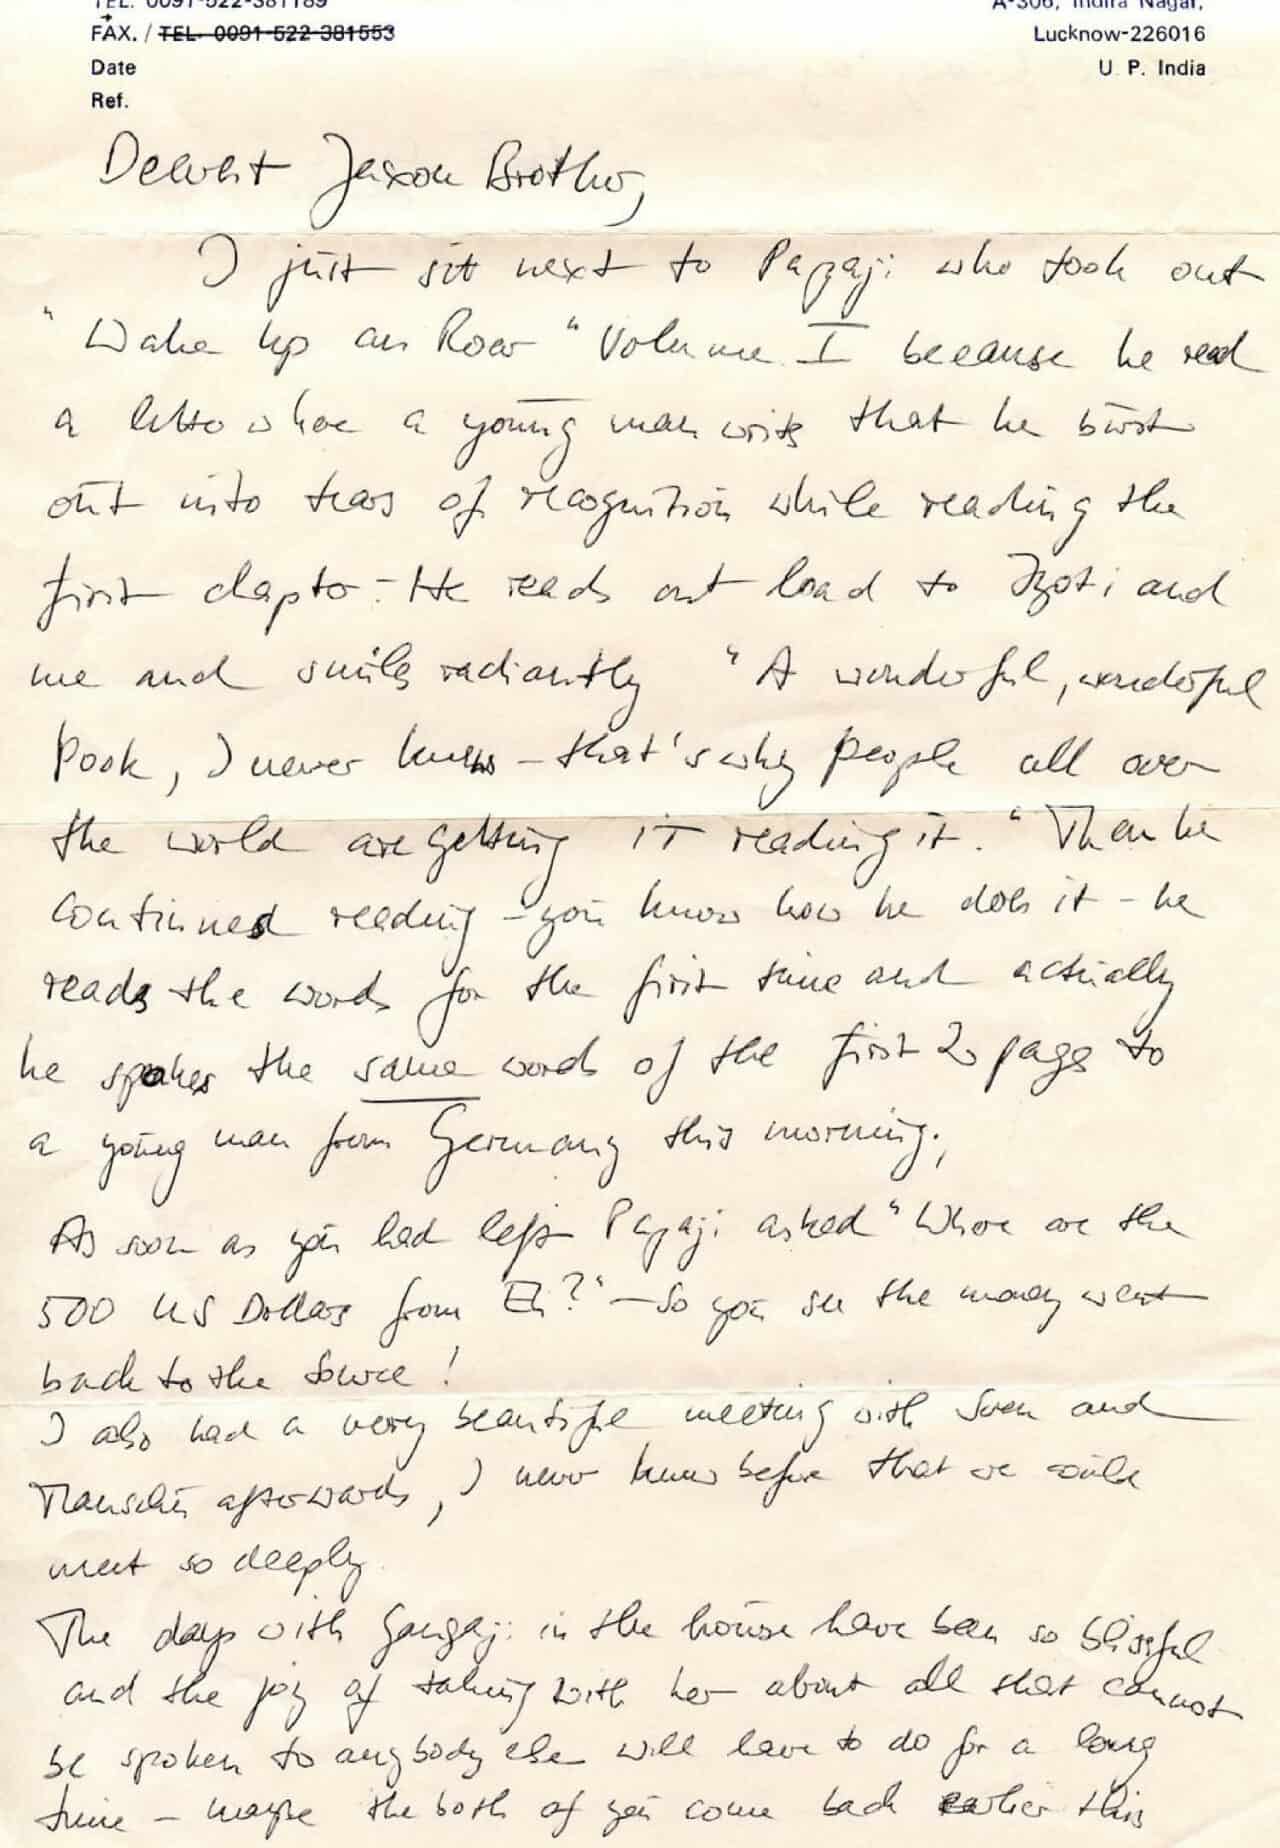 TEL. 0091-522-381189
FAX. / TEL. 0091-522-381553
Date
Ref.
A-306, Indira Nagar,
Lucknow-226016
U. P. India
Dearest Jaxon Brother,
I just sit next to Papaji who took out
"Wake up an Roar" Volume I because he read
a letter where a young man writes that he burst
out into tears of recognition while reading the
first chapter - He reads out load to Jyoti and
me and smiles radiantly "A wonderful, wonderful
book, I never knew - that's why people all over
the world are getting it reading it." Then he
continued reading - you know how he does it - he
reads the words for the first time and actually
he spokes the same words of the first 2 pages to
a young man from Germany this morning.
As soon as you had left Papaji asked "Where are the
500 US Dollars from Eli?" - So you see the money went
back to the Source!
I also had a very beautiful meeting with Sven and
afterwards, I never knew before that we could
meet so deeply.
The days with Gangaji in the house have been so blissful
and the joy of talking with her about all that cannot
be spoken to anybody else will have to do for a long
time - maybe the both of you come back earlier this